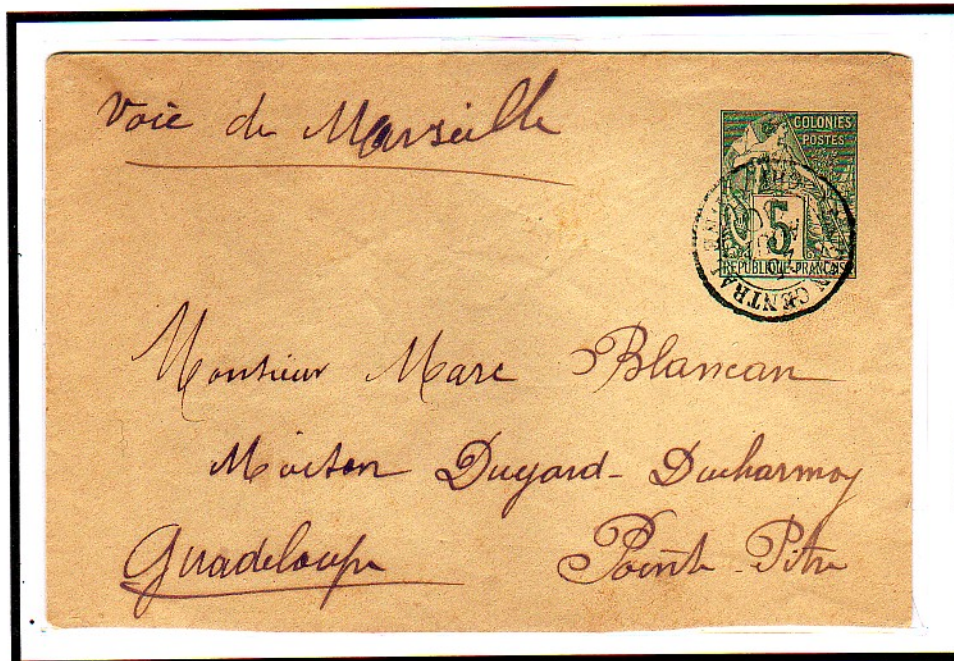 Voie de Marseille
COLONIES
POSTES
5
REPUBLIQUE FRANCAIS
CENTRAL
Monsieur Marc Blancan
Maison Dugard-Ducharmoy
Guadeloupe Pointe-Pitre